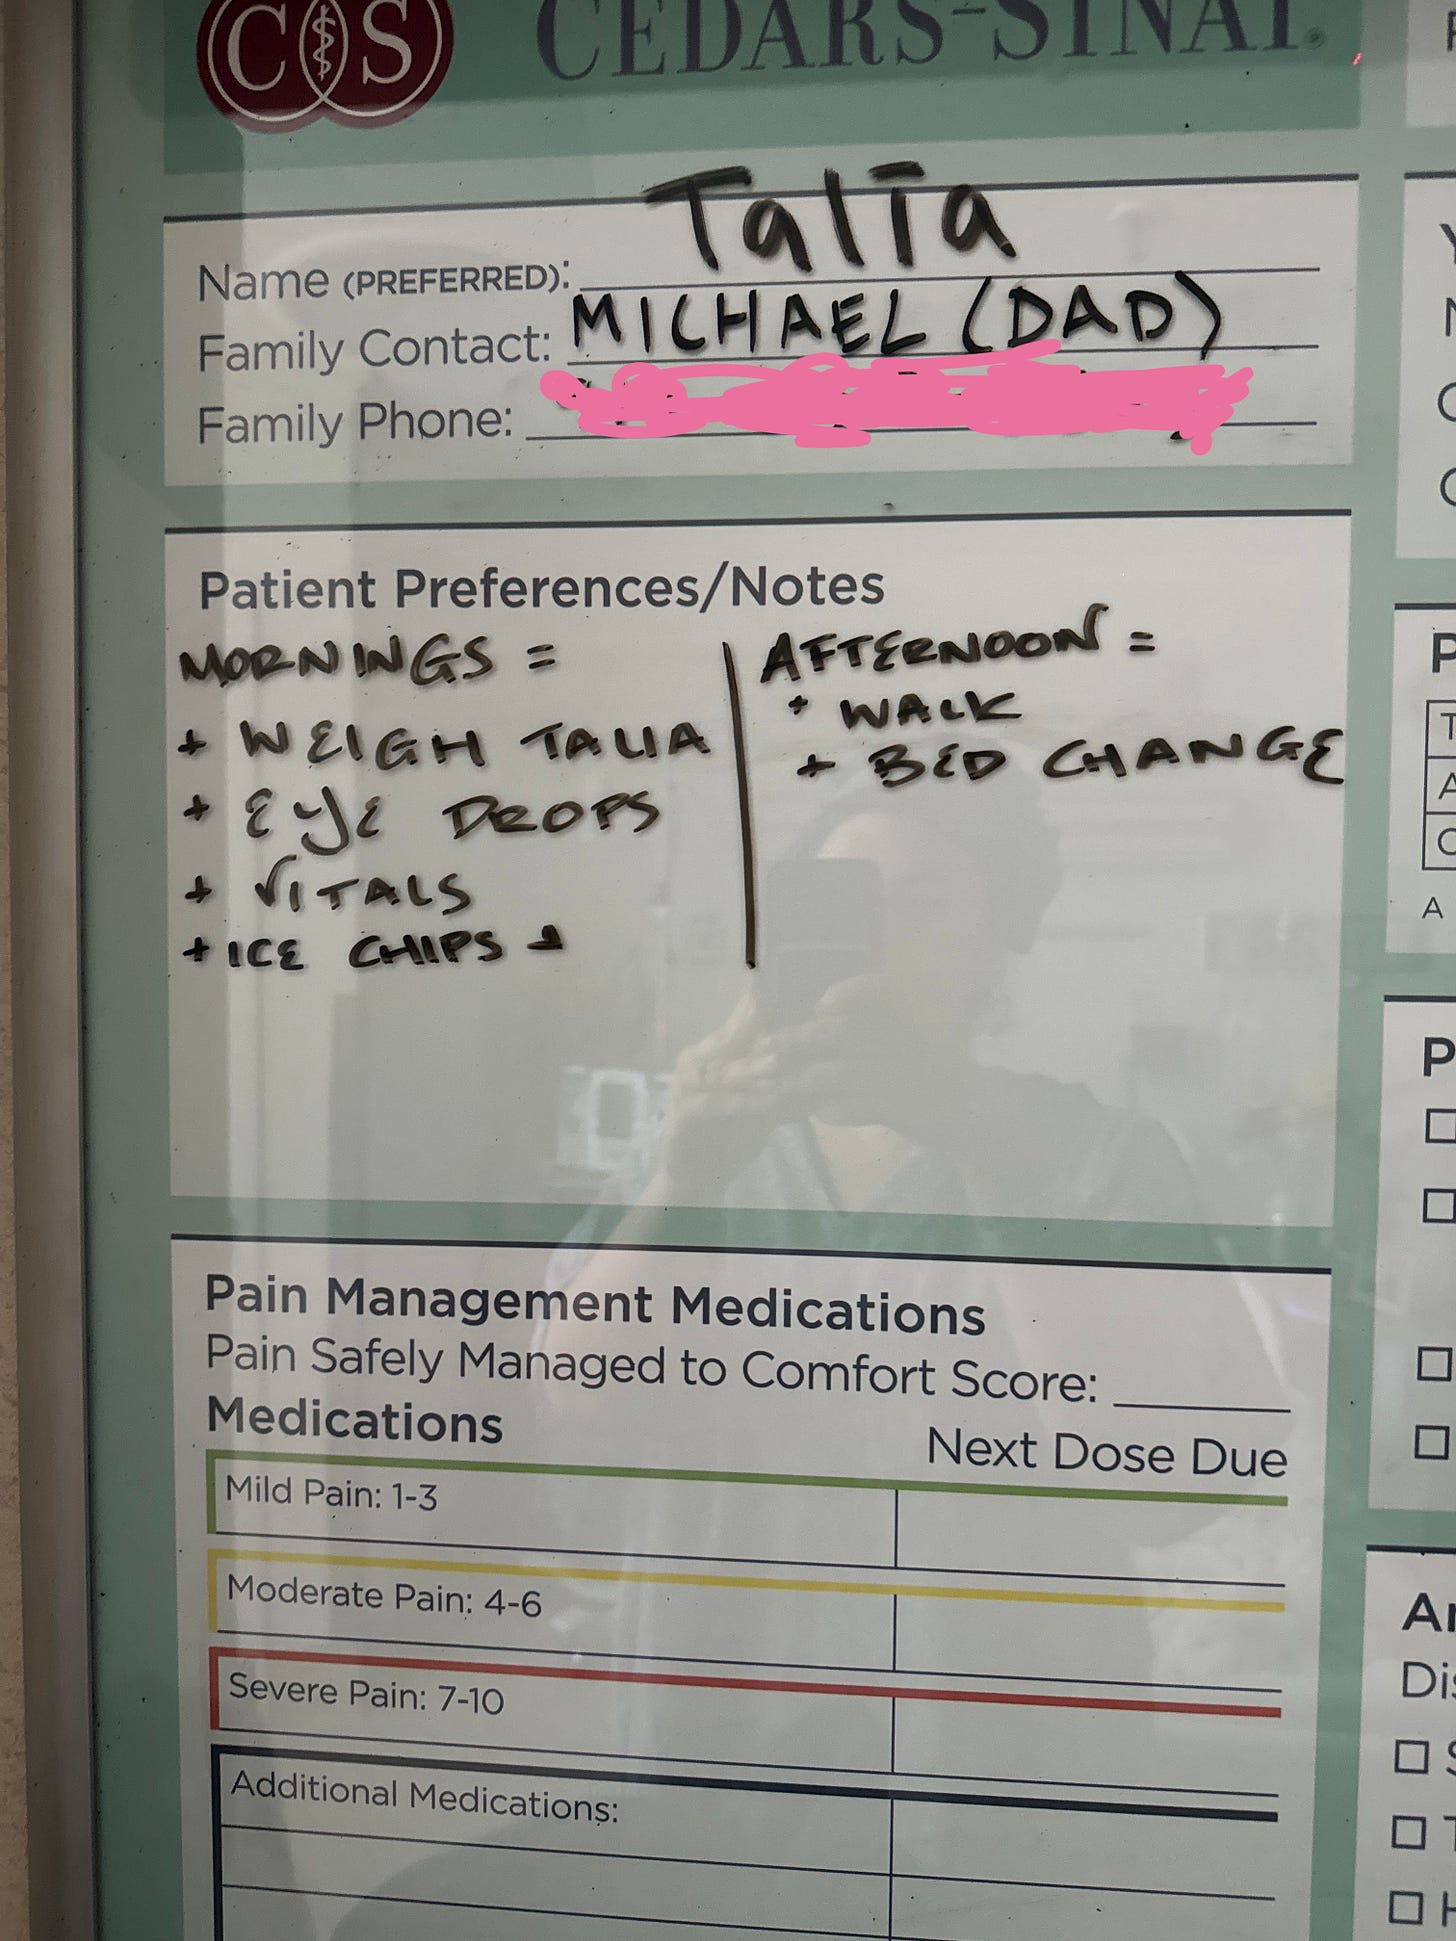 CS
CEDARS-SINAI®
Name (PREFERRED): Talia
Family Contact: MICHAEL (DAD)
Family Phone:
Patient Preferences/Notes
MORNINGS =
+ WEIGH TALIA
+ EYE DROPS
+ VITALS
+ ICE CHIPS
AFTERNOON =
+ WALK
+ BED CHANGE
Pain Management Medications
Pain Safely Managed to Comfort Score:
Medications
Next Dose Due
Mild Pain: 1-3
Moderate Pain: 4-6
Severe Pain: 7-10
Additional Medications: